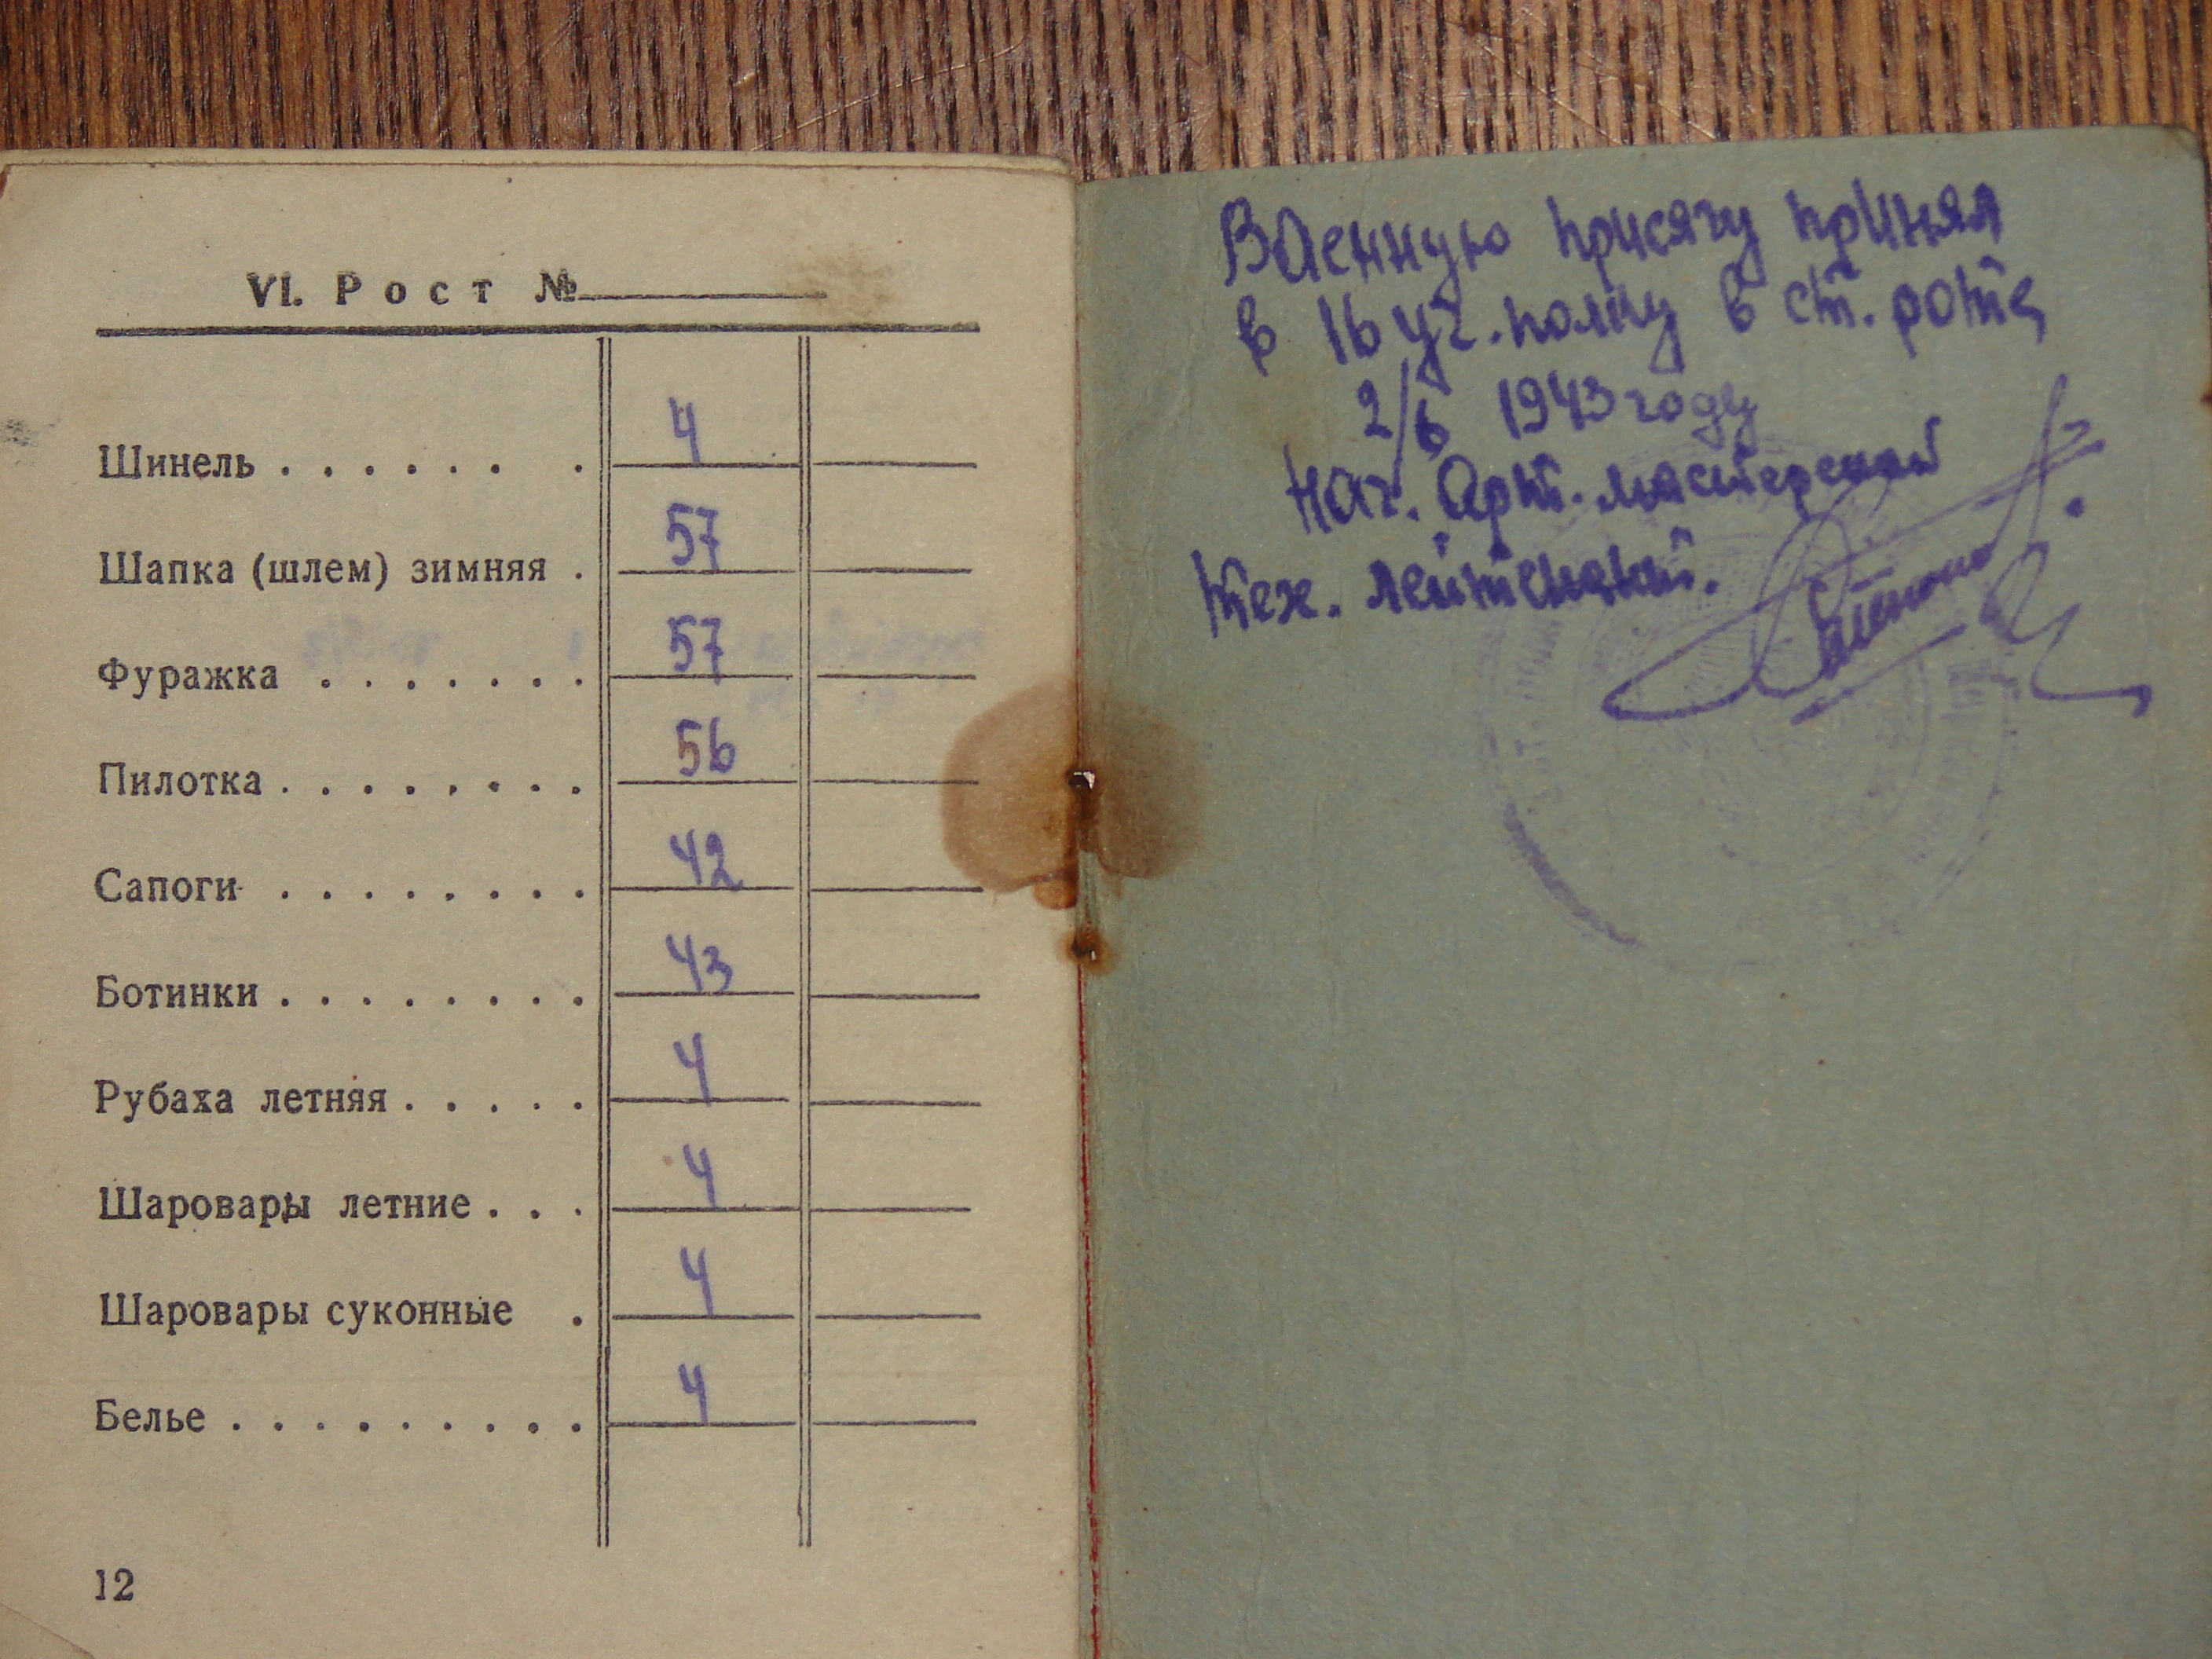 VI. Рост №
Шинель . . . . . . . 4
Шапка (шлем) зимняя . 57
Фуражка . . . . . . . 57
Пилотка . . . . . . . . 56
Сапоги . . . . . . . . 42
Ботинки . . . . . . . . 43
Рубаха летняя . . . . . 4
Шаровары летние . . . 4
Шаровары суконные . 4
Белье . . . . . . . . . 4
12
Военную присягу принял
в 16 уч. полку в ст. роте
2/6 1943 году
Нач. Арт. мастерской
тех. лейтенант.